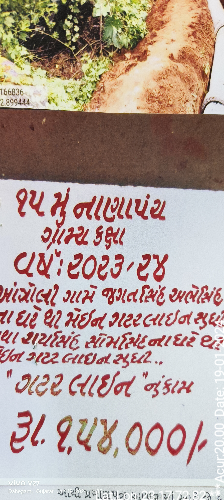 166836
2.899444
૧૫ મું નાણાપંચ
ગ્રામ્ય કક્ષા
વર્ષ:૨૦૨૩/૨૪
આંત્રોલી ગામે જગતસિંહ અભેસિંહ
ના ઘરે થી મેઈન ગટર લાઈન સુધી
થા રાયસિંહ સોમસિંહ ના ઘરે થી
ઈન ગટર લાઈન સુધી..
"ગટર લાઈન" નું કામ
રૂા. ૧,૫૪,000/-